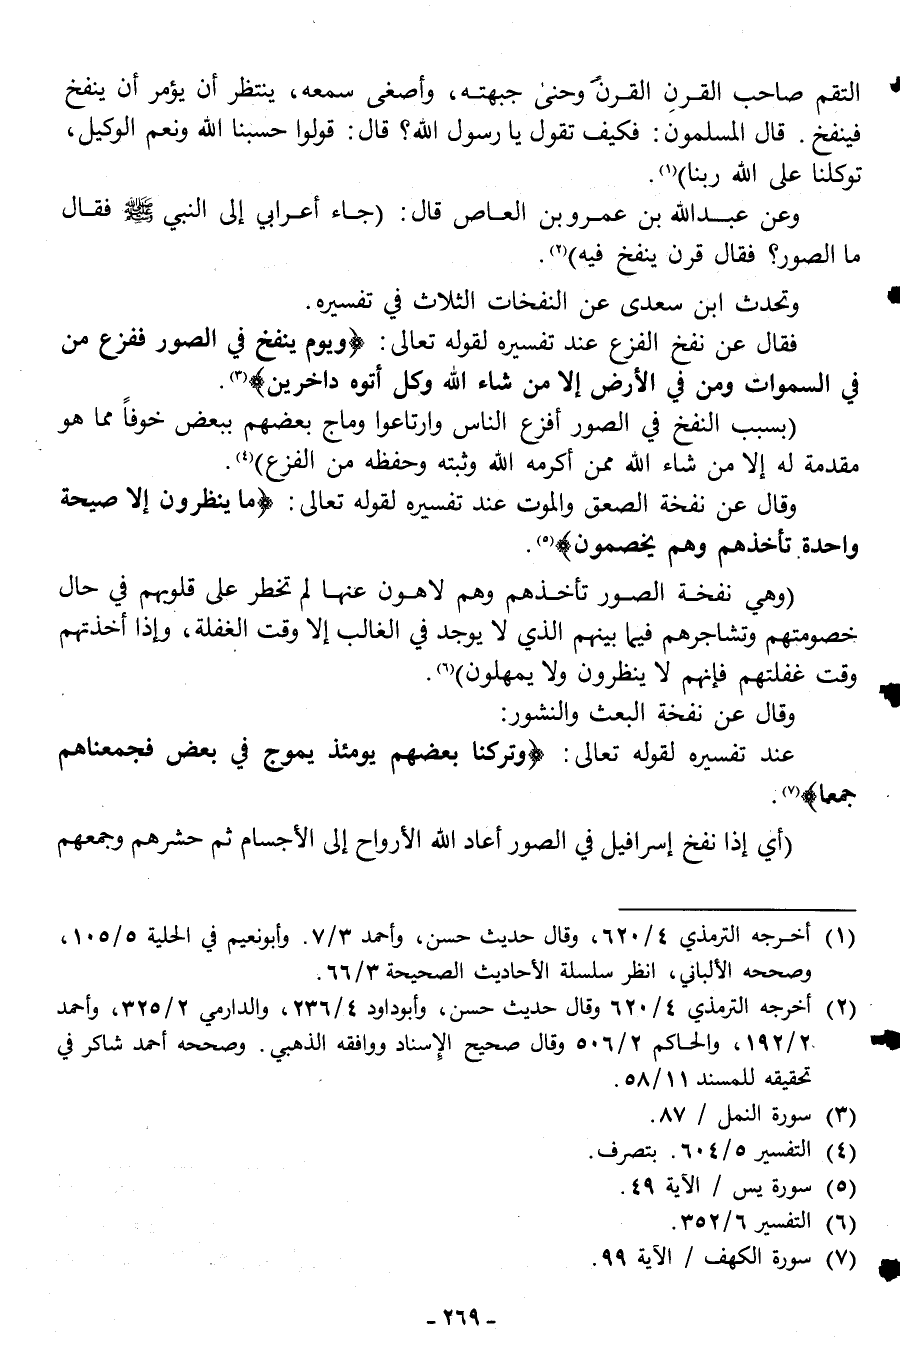 التقم صاحب القرنِ القرنَ وحنىٰ جبهته، وأصغى سمعه، ينتظر أن يؤمر أن ينفخ
فينفخ. قال المسلمون: فكيف تقول يا رسول الله؟ قال: قولوا حسبنا الله ونعم الوكيل،
توكلنا على الله ربنا)(١).
وعن عبدالله بن عمرو بن العاص قال: (جاء أعرابي إلى النبي ﷺ فقال
ما الصور؟ فقال قرن ينفخ فيه)(٢).
وتحدث ابن سعدى عن النفخات الثلاث في تفسيره.
فقال عن نفخ الفزع عند تفسيره لقوله تعالى: ﴿ويوم ينفخ في الصور ففزع من
في السموات ومن في الأرض إلا من شاء الله وكل أتوه داخرين﴾(٣).
(بسبب النفخ في الصور أفزع الناس وارتاعوا وماج بعضهم ببعض خوفاً مما هو
مقدمة له إلا من شاء الله ممن أكرمه الله وثبته وحفظه من الفزع)(٤).
وقال عن نفخة الصعق والموت عند تفسيره لقوله تعالى: ﴿ما ينظرون إلا صيحة
واحدة تأخذهم وهم يخصمون﴾(٥).
(وهي نفخة الصور تأخذهم وهم لاهون عنها لم تخطر على قلوبهم في حال
خصومتهم وتشاجرهم فيما بينهم الذي لا يوجد في الغالب إلا وقت الغفلة، وإذا أخذتهم
وقت غفلتهم فإنهم لا ينظرون ولا يمهلون)(٦).
وقال عن نفخة البعث والنشور:
عند تفسيره لقوله تعالى: ﴿وتركنا بعضهم يومئذ يموج في بعض فجمعناهم
جمعا﴾(٧).
(أي إذا نفخ إسرافيل في الصور أعاد الله الأرواح إلى الأجسام ثم حشرهم وجمعهم
(١) أخرجه الترمذي ٦٢٠/٤، وقال حديث حسن، وأحمد ٧/٣. وأبونعيم في الحلية ١٠٥/٥،
وصححه الألباني، انظر سلسلة الأحاديث الصحيحة ٦٦/٣.
(٢) أخرجه الترمذي ٦٢٠/٤ وقال حديث حسن، وأبوداود ٢٣٦/٤، والدارمي ٣٢٥/٢، وأحمد
١٩٢/٢، والحاكم ٥٠٦/٢ وقال صحيح الإسناد ووافقه الذهبي. وصححه أحمد شاكر في
تحقيقه للمسند ٥٨/١١.
(٣) سورة النمل / ٨٧.
(٤) التفسير ٦٠٤/٥. بتصرف.
(٥) سورة يس / الآية ٤٩.
(٦) التفسير ٣٥٢/٦.
(٧) سورة الكهف / الآية ٩٩.
- ٢٦٩ -